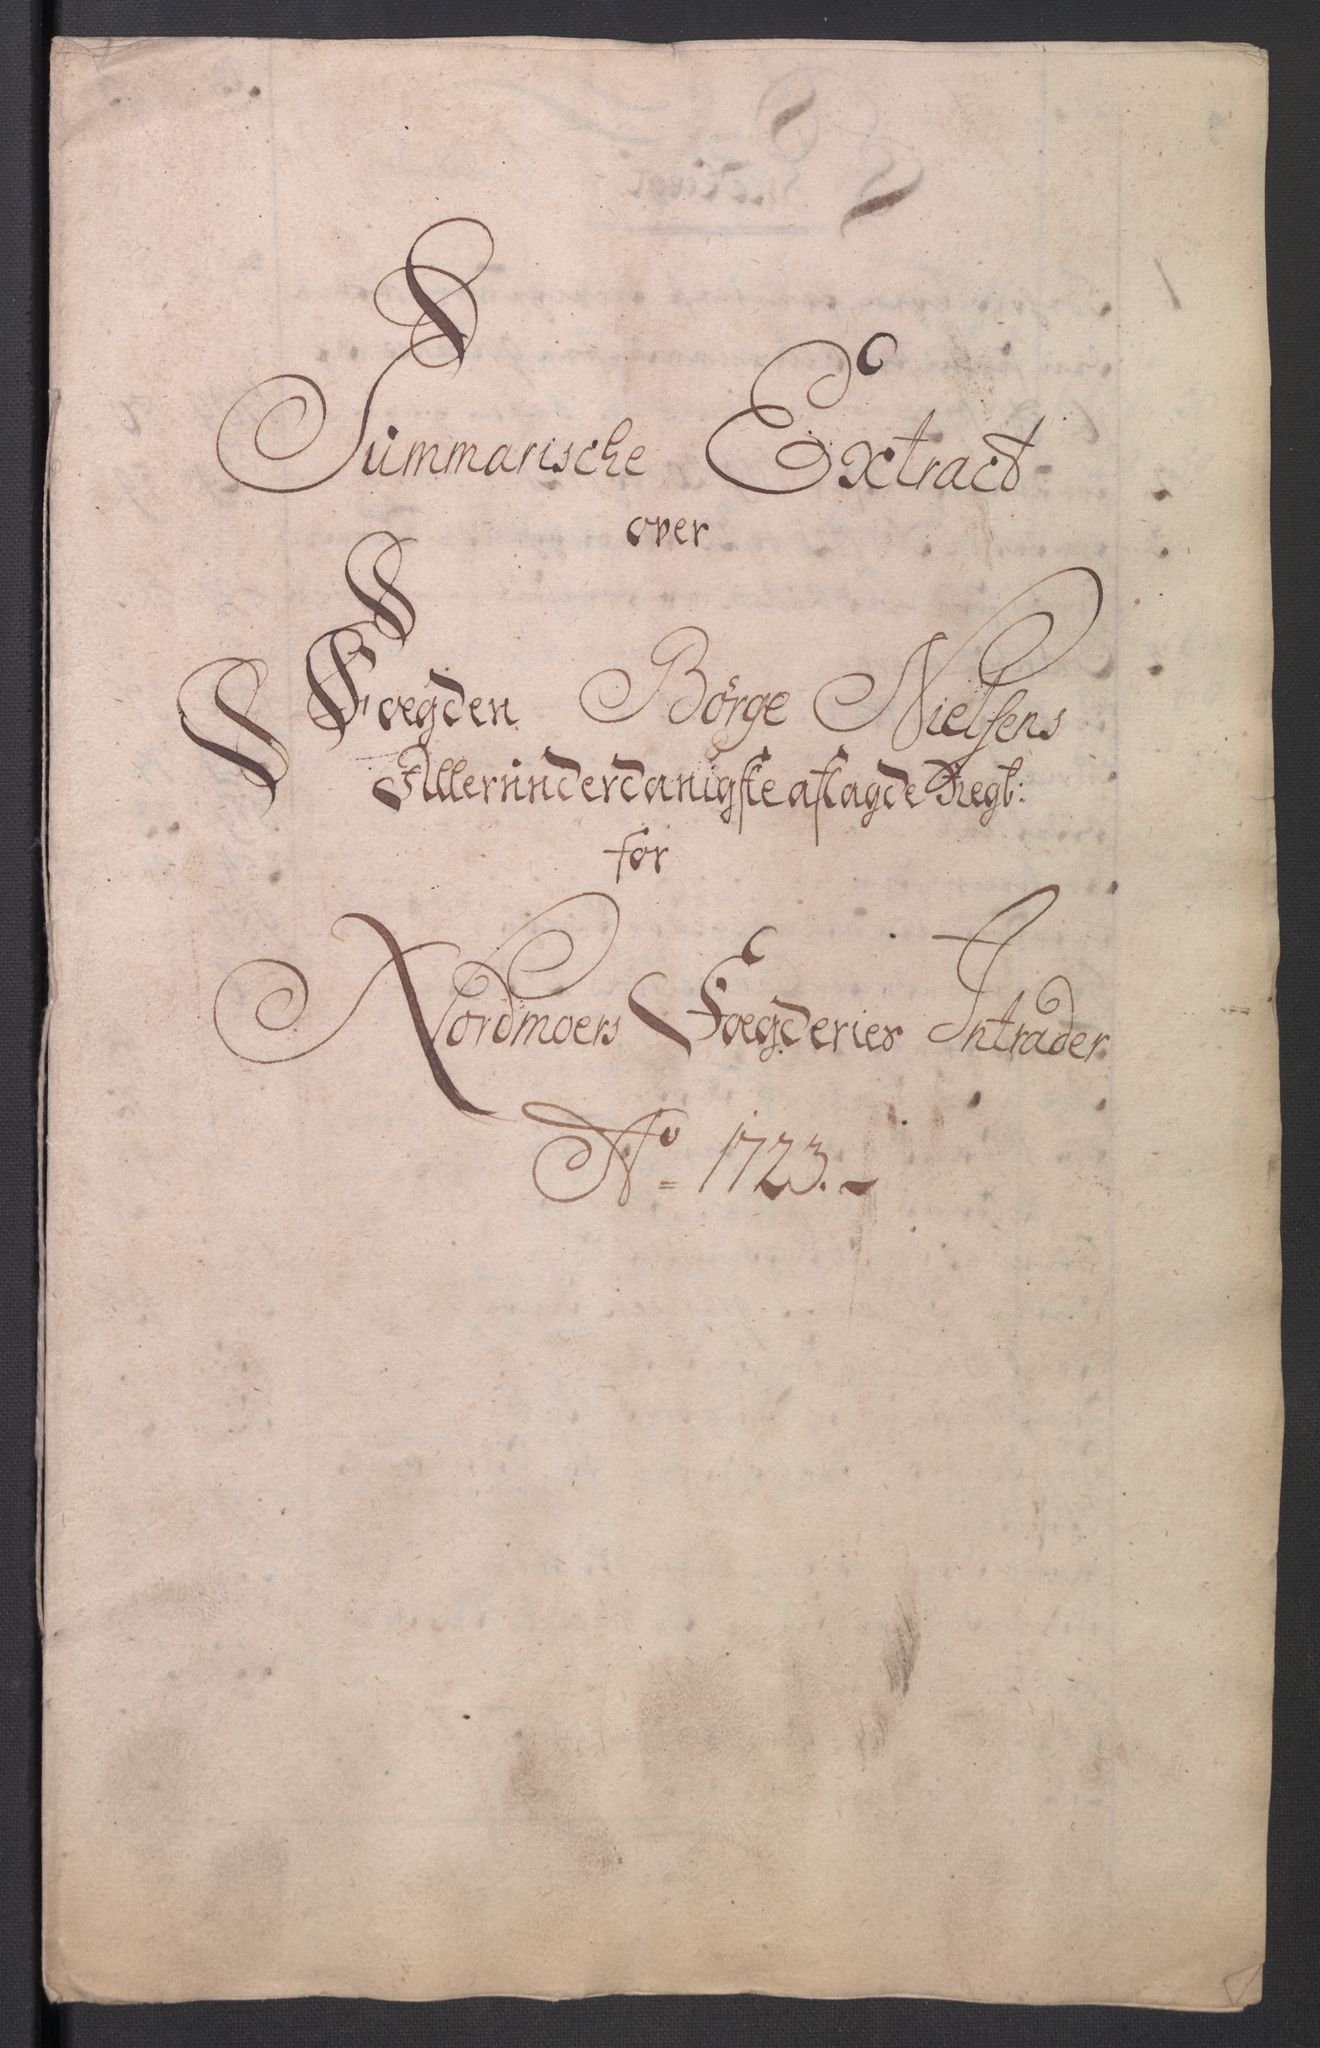 Summarische Extract
over
Foegden Börge Nielsens
Allerunderdanigste aflagde Regt:
for
Nordmoers Foegderies Intrader
No = 1723.